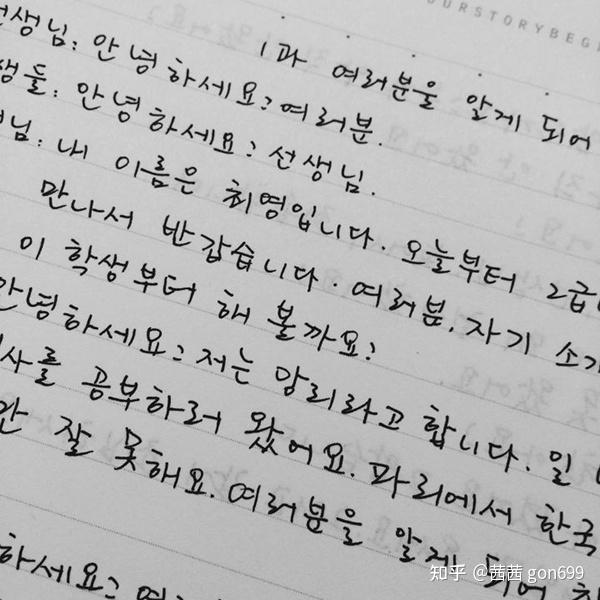 OURSTORYBEG
1과 여러분을 알게 되어
선생님: 안녕하세요? 여러분.
생들: 안녕하세요? 선생님.
님: 내 이름은 최영입니다. 오늘부터 2급
만나서 반갑습니다. 여러분, 자기 소개
이 학생부터 해 볼까요?
안녕하세요? 저는 앙리라고 합니다. 일
사를 공부하러 왔어요. 파리에서 한국
간 잘 못해요. 여러분을 알게 되어
하세요?
知乎 @茜茜 gon699